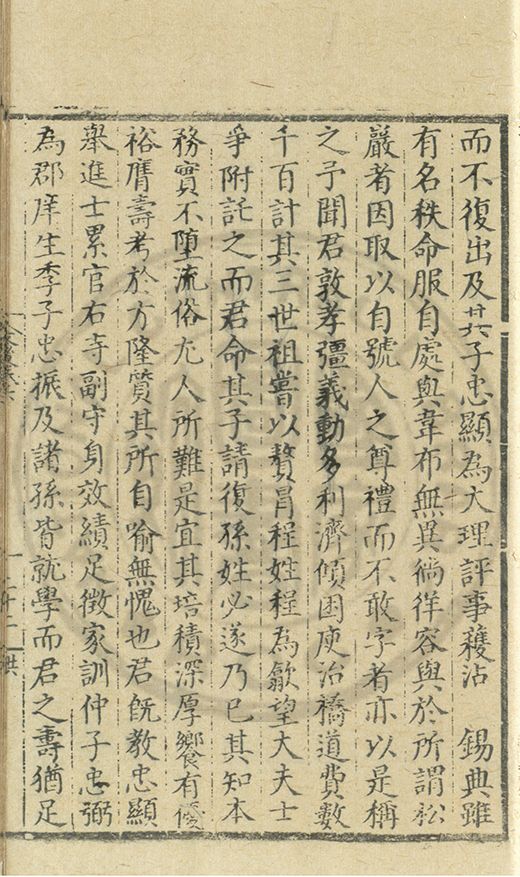 而不復出及其子忠顯為大理評事獲沾　錫典雖
有名秩命服自處與韋布無異徜徉容與於所謂松
嚴者因取以自號人之尊禮而不敢字者亦以是稱
之予聞君敦孝彊義動多利濟傾囷庾治橋道費數
千百計其三世祖嘗以贅冐程姓程為歙望大夫士
爭附託之而君命其子請復孫姓必遂乃已其知本
務實不墮流俗尤人所難是宜其培積深厚饗有優
裕膺壽考於方隆質其所自喻無愧也君旣教忠顯
舉進士累官右寺副守身效績足徵家訓仲子忠弼
為郡庠生季子忠振及諸孫皆就學而君之壽猶足